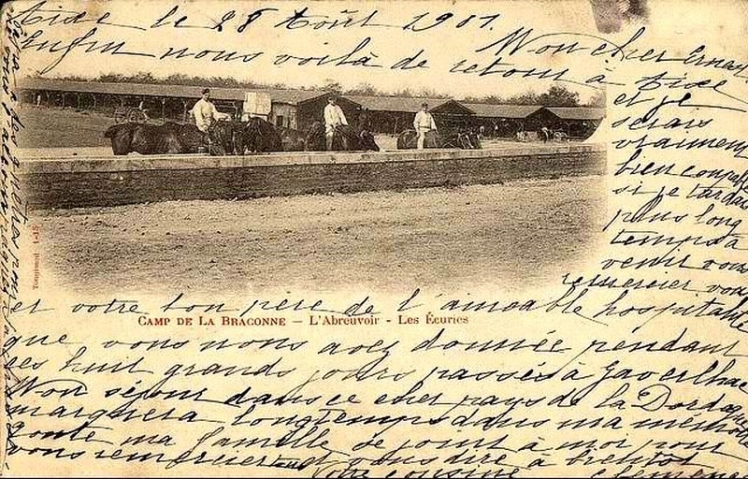 fixe le 28 Août 1901.
Mon cher Ernest
Enfin nous voilà de retour à fixe
et je
serais
vraiment
bien coupable
si je tardais
plus long
temps à
venir vous
remercier vous
et votre bon père de l'aimable hospitalité
CAMP DE LA BRACONNE — L'Abreuvoir - Les Écuries
que vous nous avez donnée pendant
ces huit grands jours passés à
Mon séjour dans ce cher pays de la Dordogne
marquera longtemps dans ma mémoire
toute ma famille se joint à moi pour
vous remercier et vous dire à bientôt
Votre cousine